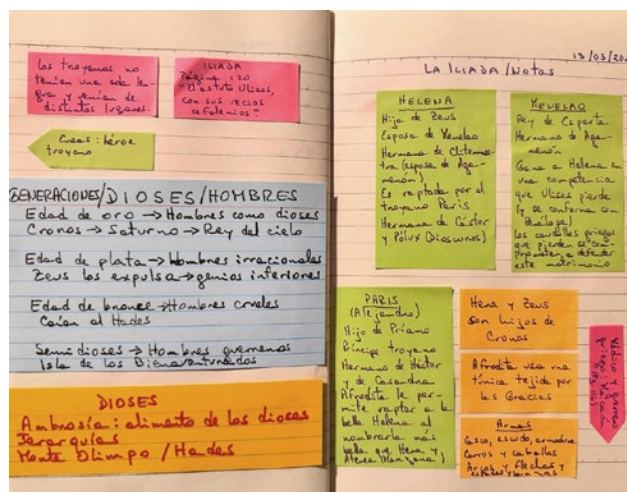 Los troyanos no
tenían una sola len-
gua y venían de
distintos lugares.
ILIADA
Página 120
El astuto Ulises,
con sus recios
cefalenios!
Eneas: héroe
troyano
GENERACIONES/DIOSES/HOMBRES
Edad de oro → Hombres como dioses
Cronos → Saturno → Rey del cielo
Edad de plata → hombres irracionales
Zeus los expulsa → genios inferiores
Edad de bronce → Hombres crueles
Caían al Hades
Semidioses → Hombres guerreros
Isla de los Bienaventurados
DIOSES
Ambrosía: alimento de los dioses
Jerarquías
Monte Olimpo / Hades
13/03/20
LA ILIADA / Notas
HELENA
Hija de Zeus
Esposa de Menelao
Hermana de Clitemnes-
tra (esposa de Aga-
menón)
Es raptada por el
troyano Paris
Hermana de Cástor
y Pólux (Dioscuros)
MENELAO
Rey de Esparta
Hermano de Aga-
menón
Gana a Helena en
una competencia
que Ulises pierde
(y se conforma con
Penélope)
Los caudillos griegos
que pierden se com-
prometen a defender
este matrimonio
PARIS
(Alejandro)
Hijo de Príamo
Príncipe troyano
Hermano de Héctor
y de Casandra
Afrodita le per-
mite raptar a la
bella Helena al
nombrarla más
bella que Hera y
Atenea (Manzana)
Hera y Zeus
son hijos de
Cronos
Afrodita usa una
túnica tejida por
las Gracias
Armas
Casco, escudo, armadura
Carros y caballos
Arcos y flechas y
Médico y guerrero
griego: Macaón